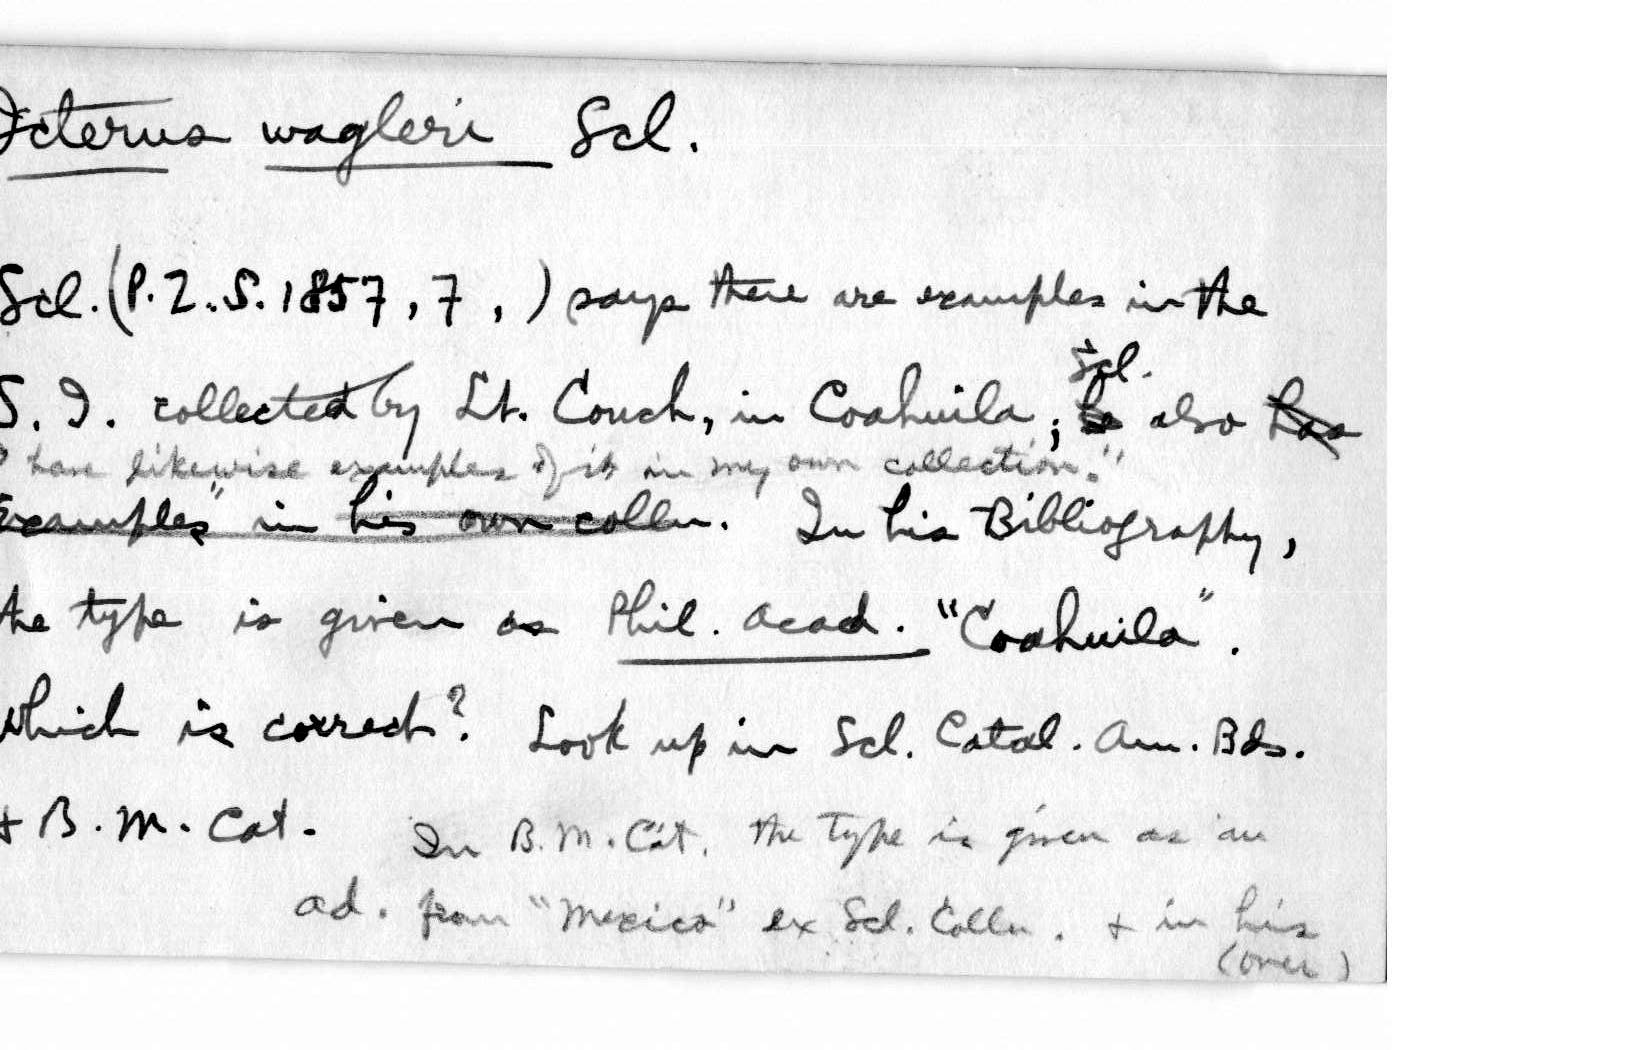 Icterus wagleri Scl.
Scl. (P.Z.S. 1857, 7, ) says there are examples in the
Scl.
S. I. collected by Lt. Couch, in Coahuila; he also has
have likewise examples of it in my own collection."
Examples" in his own colln. In his Bibliography,
the type is given as Phil. Acad. "Coahuila".
Which is correct? Look up in Scl. Catal. Am. Bds.
+ B. M. Cat. In B. M. Cat. the type is given as an
ad. from "Mexico" ex Scl. Colln. + in his
(over)